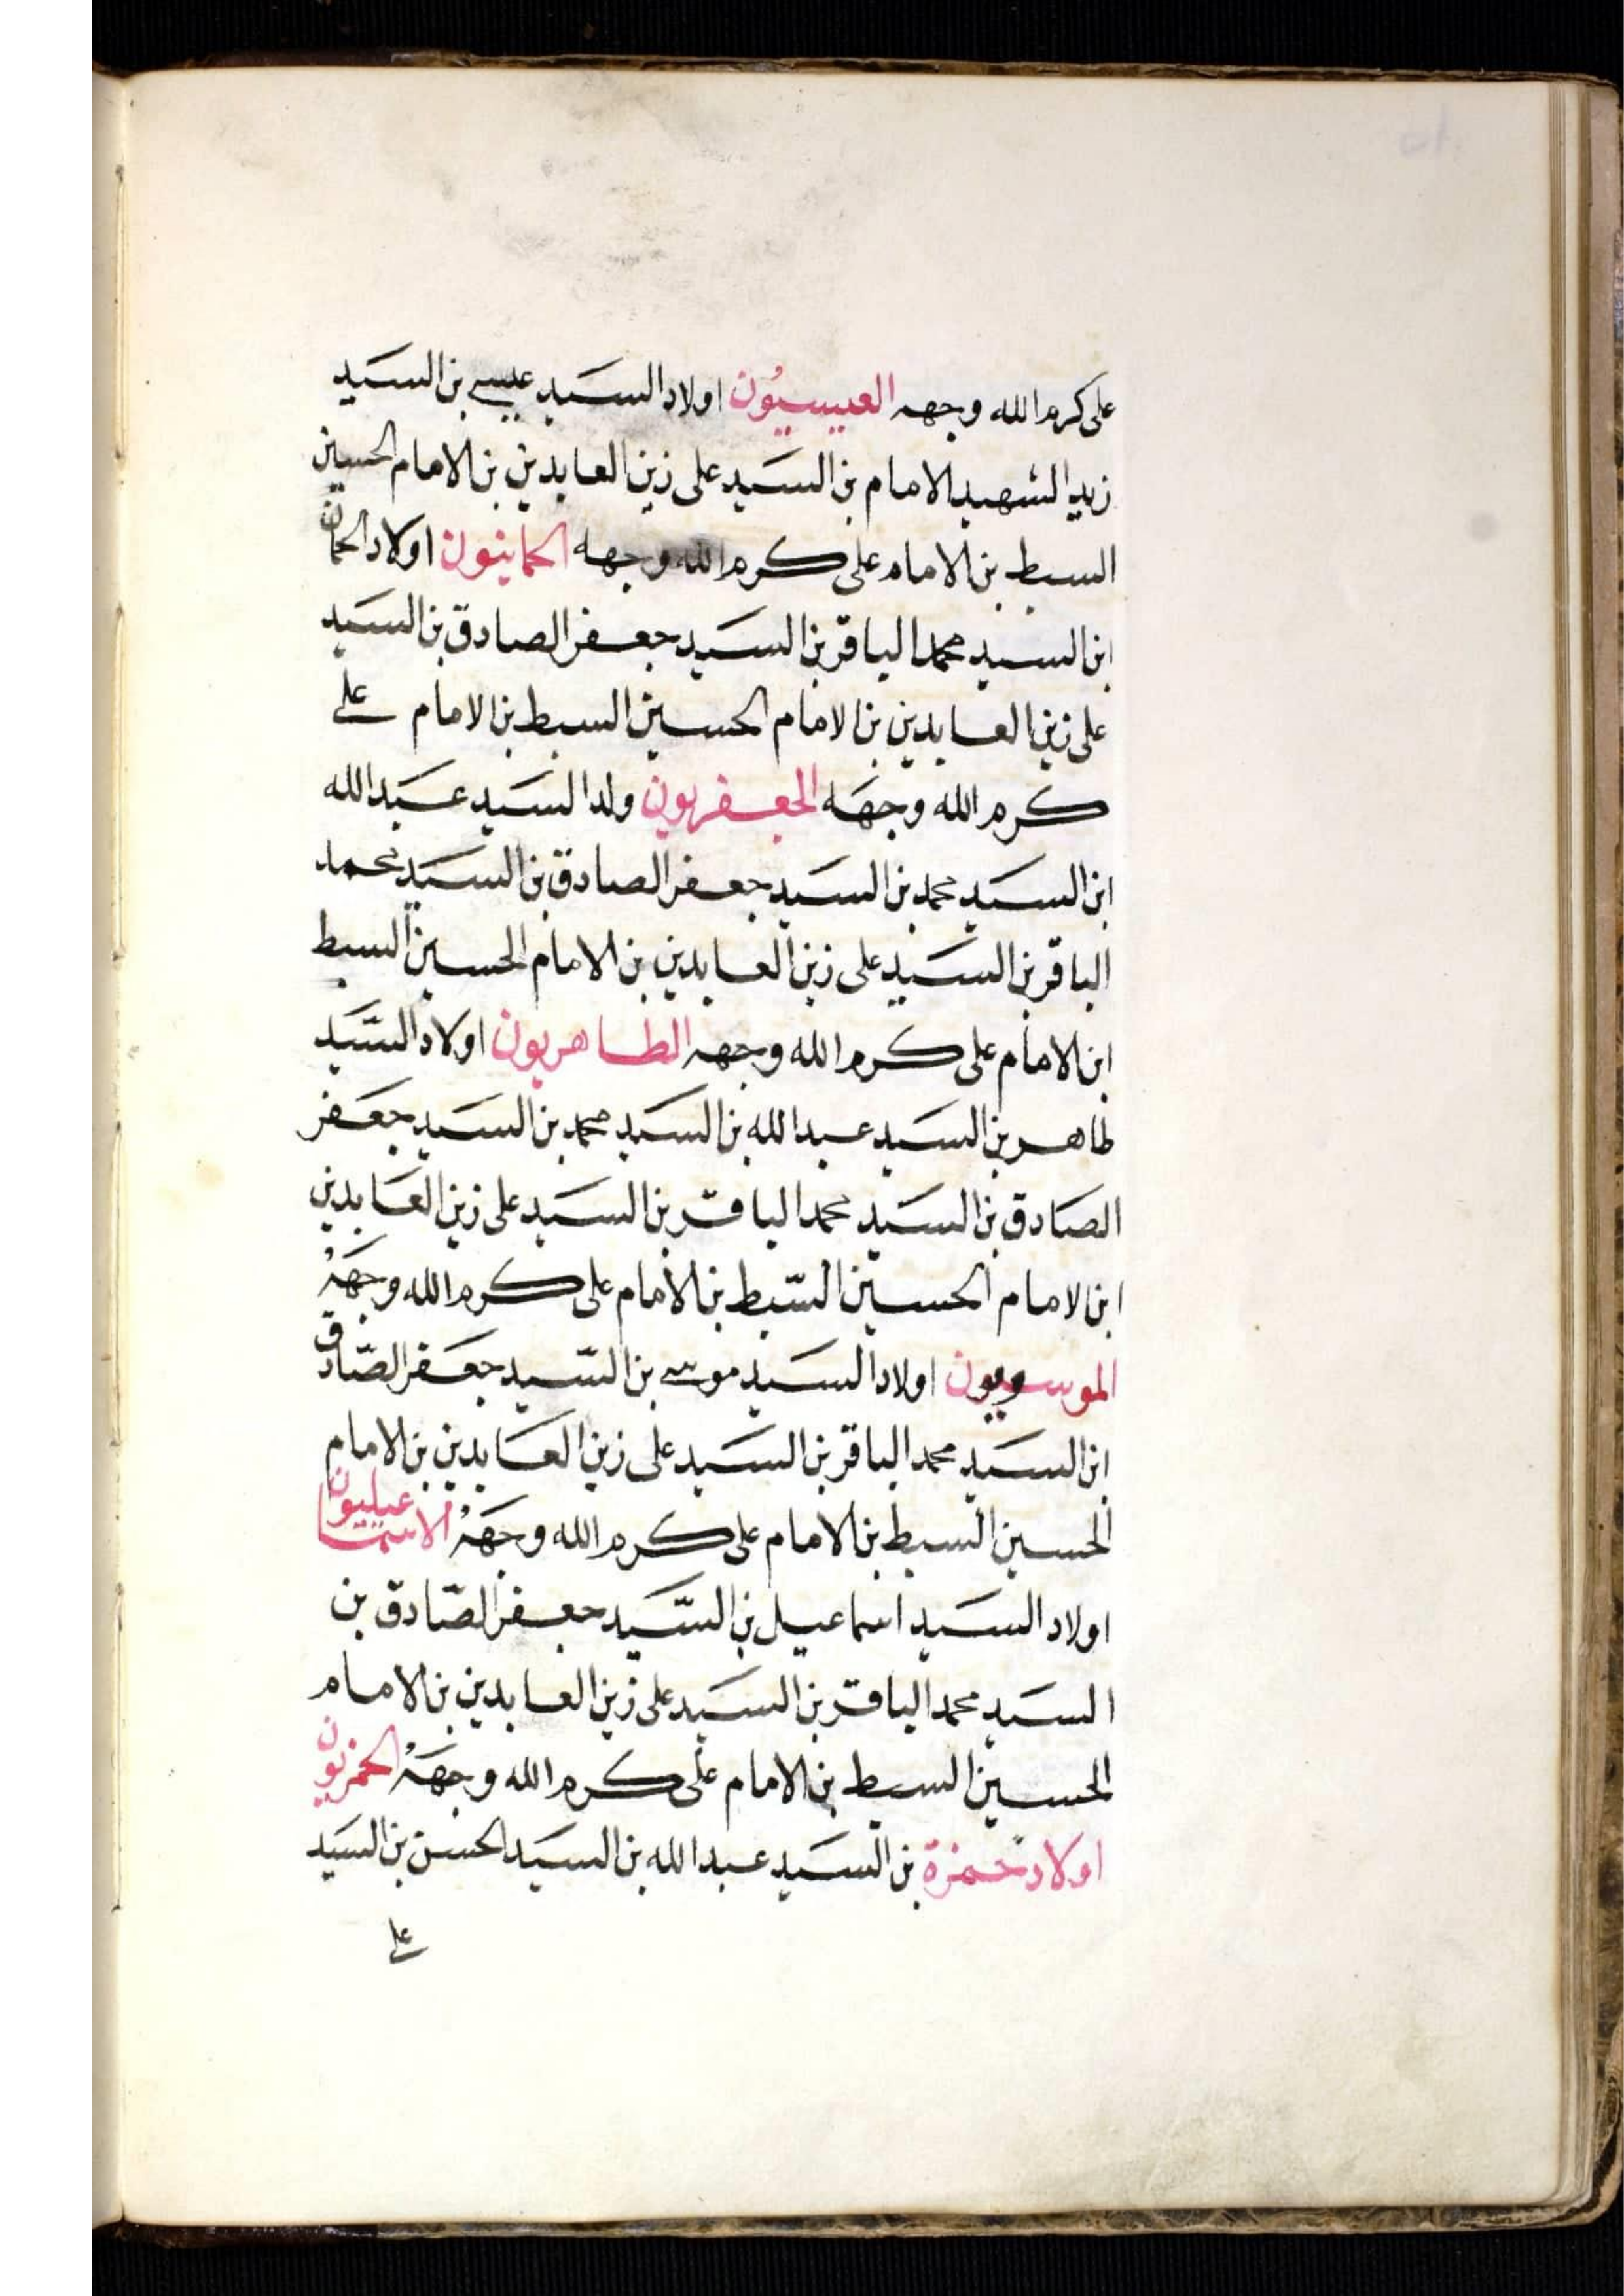 على كرم الله وجهه العيسيون اولاد السيد عيسى بن السيد
زيد الشهيد الامام بن السيد على زين العابدين بن الامام الحسين
السبط بن الامام على كرم الله وجهه الحمانيون اولاد الحمان
ابن السيد محمد الباقر بن السيد جعفر الصادق بن السيد
على زين العابدين بن الامام الحسين السبط بن الامام على
كرم الله وجهه الجعفريون ولد السيد عبد الله
ابن السيد محمد بن السيد جعفر الصادق بن السيد محمد
الباقر بن السيد على زين العابدين بن الامام الحسين السبط
ابن الامام على كرم الله وجهه الطاهريون اولاد السّيد
طاهر بن السيد عبد الله بن السيد محمد بن السيد جعفر
الصادق بن السيد محمد الباقر بن السيد على زين العابدين
ابن الامام الحسين السّبط بن الامام على كرم الله وجهه
الموسويون اولاد السيد موسى بن السّيد جعفر الصّادق
ابن السيد محمد الباقر بن السيد على زين العابدين بن الامام
الحسين السبط بن الامام على كرم الله وجهه الاسماعيليون
اولاد السيد اسماعيل بن السّيد جعفر الصّادق بن
السيد محمد الباقر بن السيد على زين العابدين بن الامام
الحسين السبط بن الامام على كرم الله وجهه الحمزيون
اولاد حمزة بن السيد عبد الله بن السيد الحسن بن السيد
على